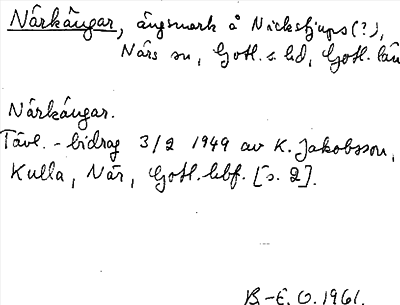 Närkängar, ängsmark å Nickstjups(?),
Närs sn, Gotl. s. hd, Gotl. län
Närkängar.
Tävl.-bidrag 3/2 1949 av K. Jakobsson,
Kulla, När, Gotl. hbf. [s. 2].
B.-E. O. 1961.